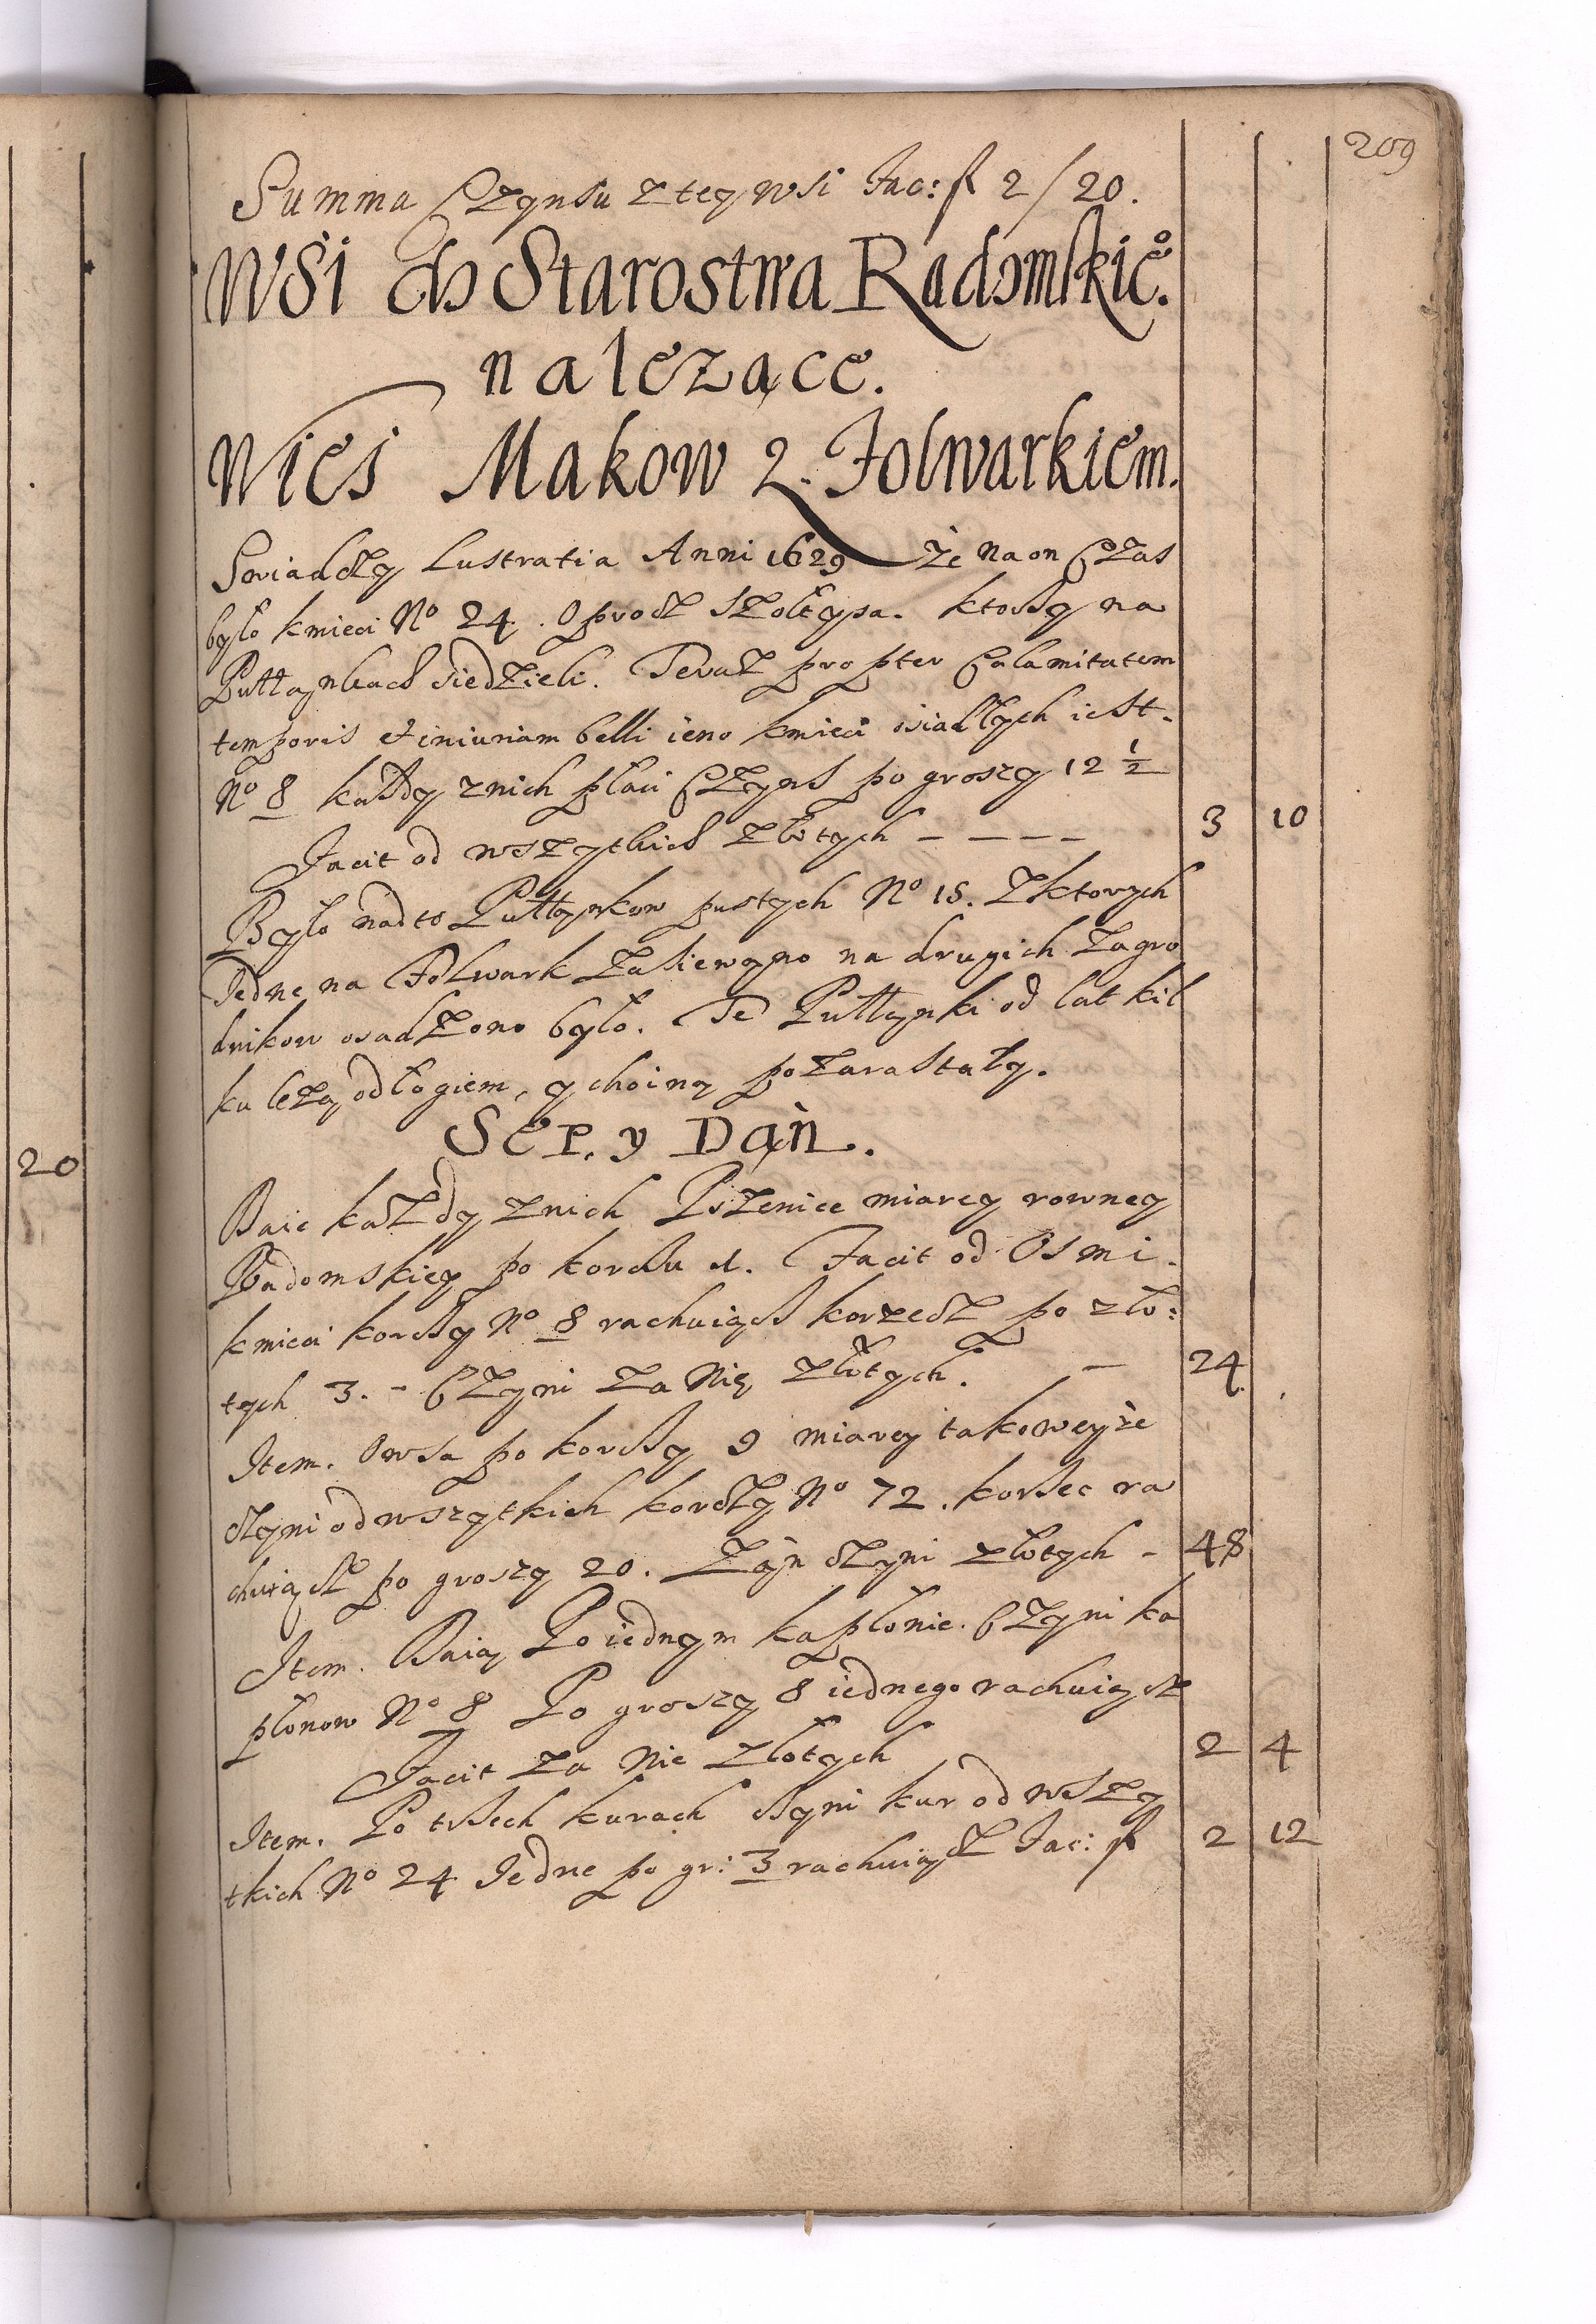 209
Summa Czynsu z tey wsi Fac: fl 2/20.
Wsi do Starostwa Radomskie°.
nalezące.
Wies Makow z Folwarkiem.
Swiadczy Lustratia Anni 1629 że na on czas
było kmieci N° 24. Oprocz Szołtysa. ktorzy na
Pułłankach siedzieli. Teraz propter Calamitatem
temporis et iniuriam belli ieno kmieci osiadłych iest.
N° 8 każdy z nich płaci Czynsz po groszy 12 ½
Facit od wszytkich złotych – – – – 3 10
Było nadto Pułłankow pustych N° 15. z ktorych
Jedne na Folwark zasiewano na drugich zagro
dnikow osadzono było. Te Pułłanki od lat kil
ku lezą odłogiem, y choiną pozarastały.
Sep. y Dań.
Daie każdy z nich Pszenice miarey rowney
Radomskiey po korcu 1. Facit od Osmi.
kmieci korcy N° 8 rachuiącz korzecz po zło:
tych 3. – Czyni za Nię złotych. – 24
Item. Owsa po korcy 9 miarey takoweyże
czyni od wszytkich korczy N° 72. korzec ra
chuiącz po groszy 20. Zań czyni złotych – 48
Item. Daią Po iednym kapłonie. Czyni ka
płonow N° 8 Po groszy 8 iednego rachuiącz
Facit za nie złotych 2 4
Item. Po trzech kurach czyni kur od wszy
tkich N° 24 Jedne po gr: 3 rachuiącz Fac: fl 2 12
20